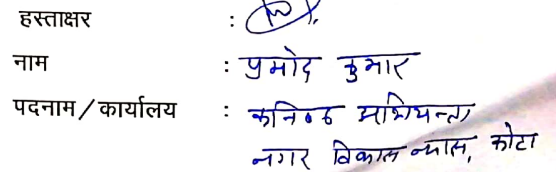 हस्ताक्षर :
नाम : प्रमोद कुमार
पदनाम/कार्यालय : कनिष्ठ अभियन्ता
नगर विकास न्यास, कोटा